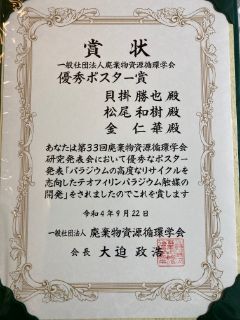 賞状
一般社団法人廃棄物資源循環学会
優秀ポスター賞
貝掛勝也殿
松尾和樹殿
金仁華殿
あなたは第33回廃棄物資源循環学会
研究発表会において優秀なポスター
発表「パラジウムの高度なリサイクルを
志向したテオフィリンパラジウム触媒の
開発」をされましたのでこれを賞します
令和4年9月22日
一般社団法人 廃棄物資源循環学会
会長 大迫政浩